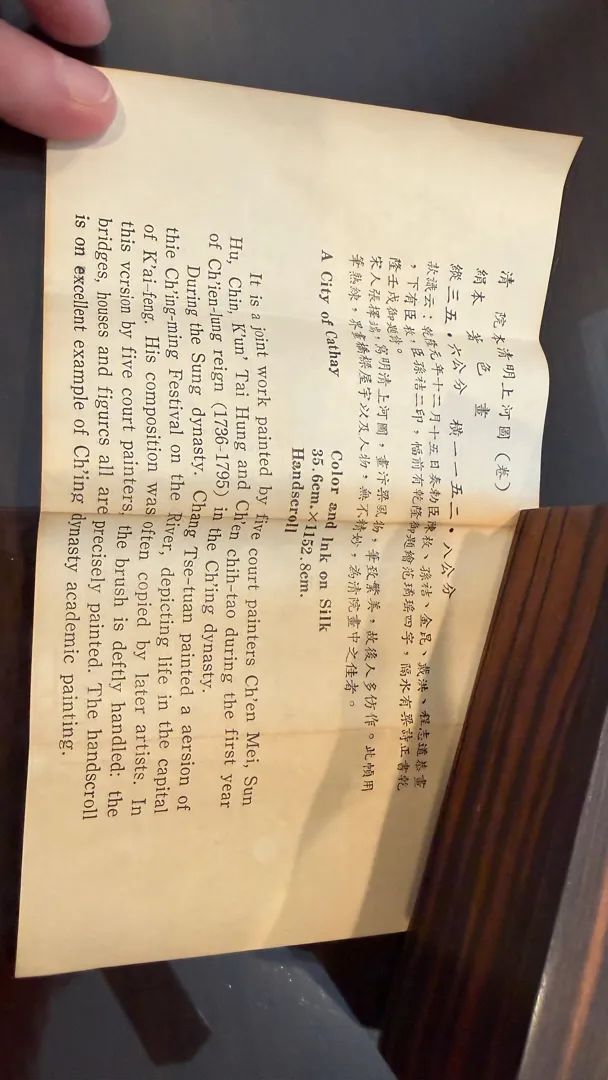 清 院本清明上河圖(卷)
絹本 著色畫
縱三五.六公分 橫一一五二.八公分
款識云:乾隆元年十二月十五日奏勅臣陳枚、孫祜、金昆、戴洪、程志道恭畫
,下有臣枚,臣孫祜二印,幅前有乾隆御題繪苑瓊瑤四字,隔水有梁詩正書乾
隆壬戌御題詩。
宋人張擇端,寫明清上河圖,畫汴梁風物,筆致繁美,故後人多仿作。此幀用
筆熟練,界畫橋樑屋宇以及人物,無不精妙,為清院畫中之佳者。
A City of Cathay
Color and Ink on Silk
35.6cm.×1152.8cm.
Handscroll
It is a joint work painted by five court painters Ch'en Mei, Sun
Hu, Chin, K'un' Tai Hung and Ch'en chih-tao during the first year
of Ch'ien-lung reign (1736-1795) in the Ch'ing dynasty.
During the Sung dynasty. Chang Tse-tuan painted a aersion of
thie Ch'ing-ming Festival on the River, depicting life in the capital
of K'ai-feng. His composition was often copied by later artists. In
this vcrsion by five court painters, the brush is deftly handled: the
bridges, houses and figures all are precisely painted. The handscroll
is on excellent example of Ch'ing dynasty academic painting.